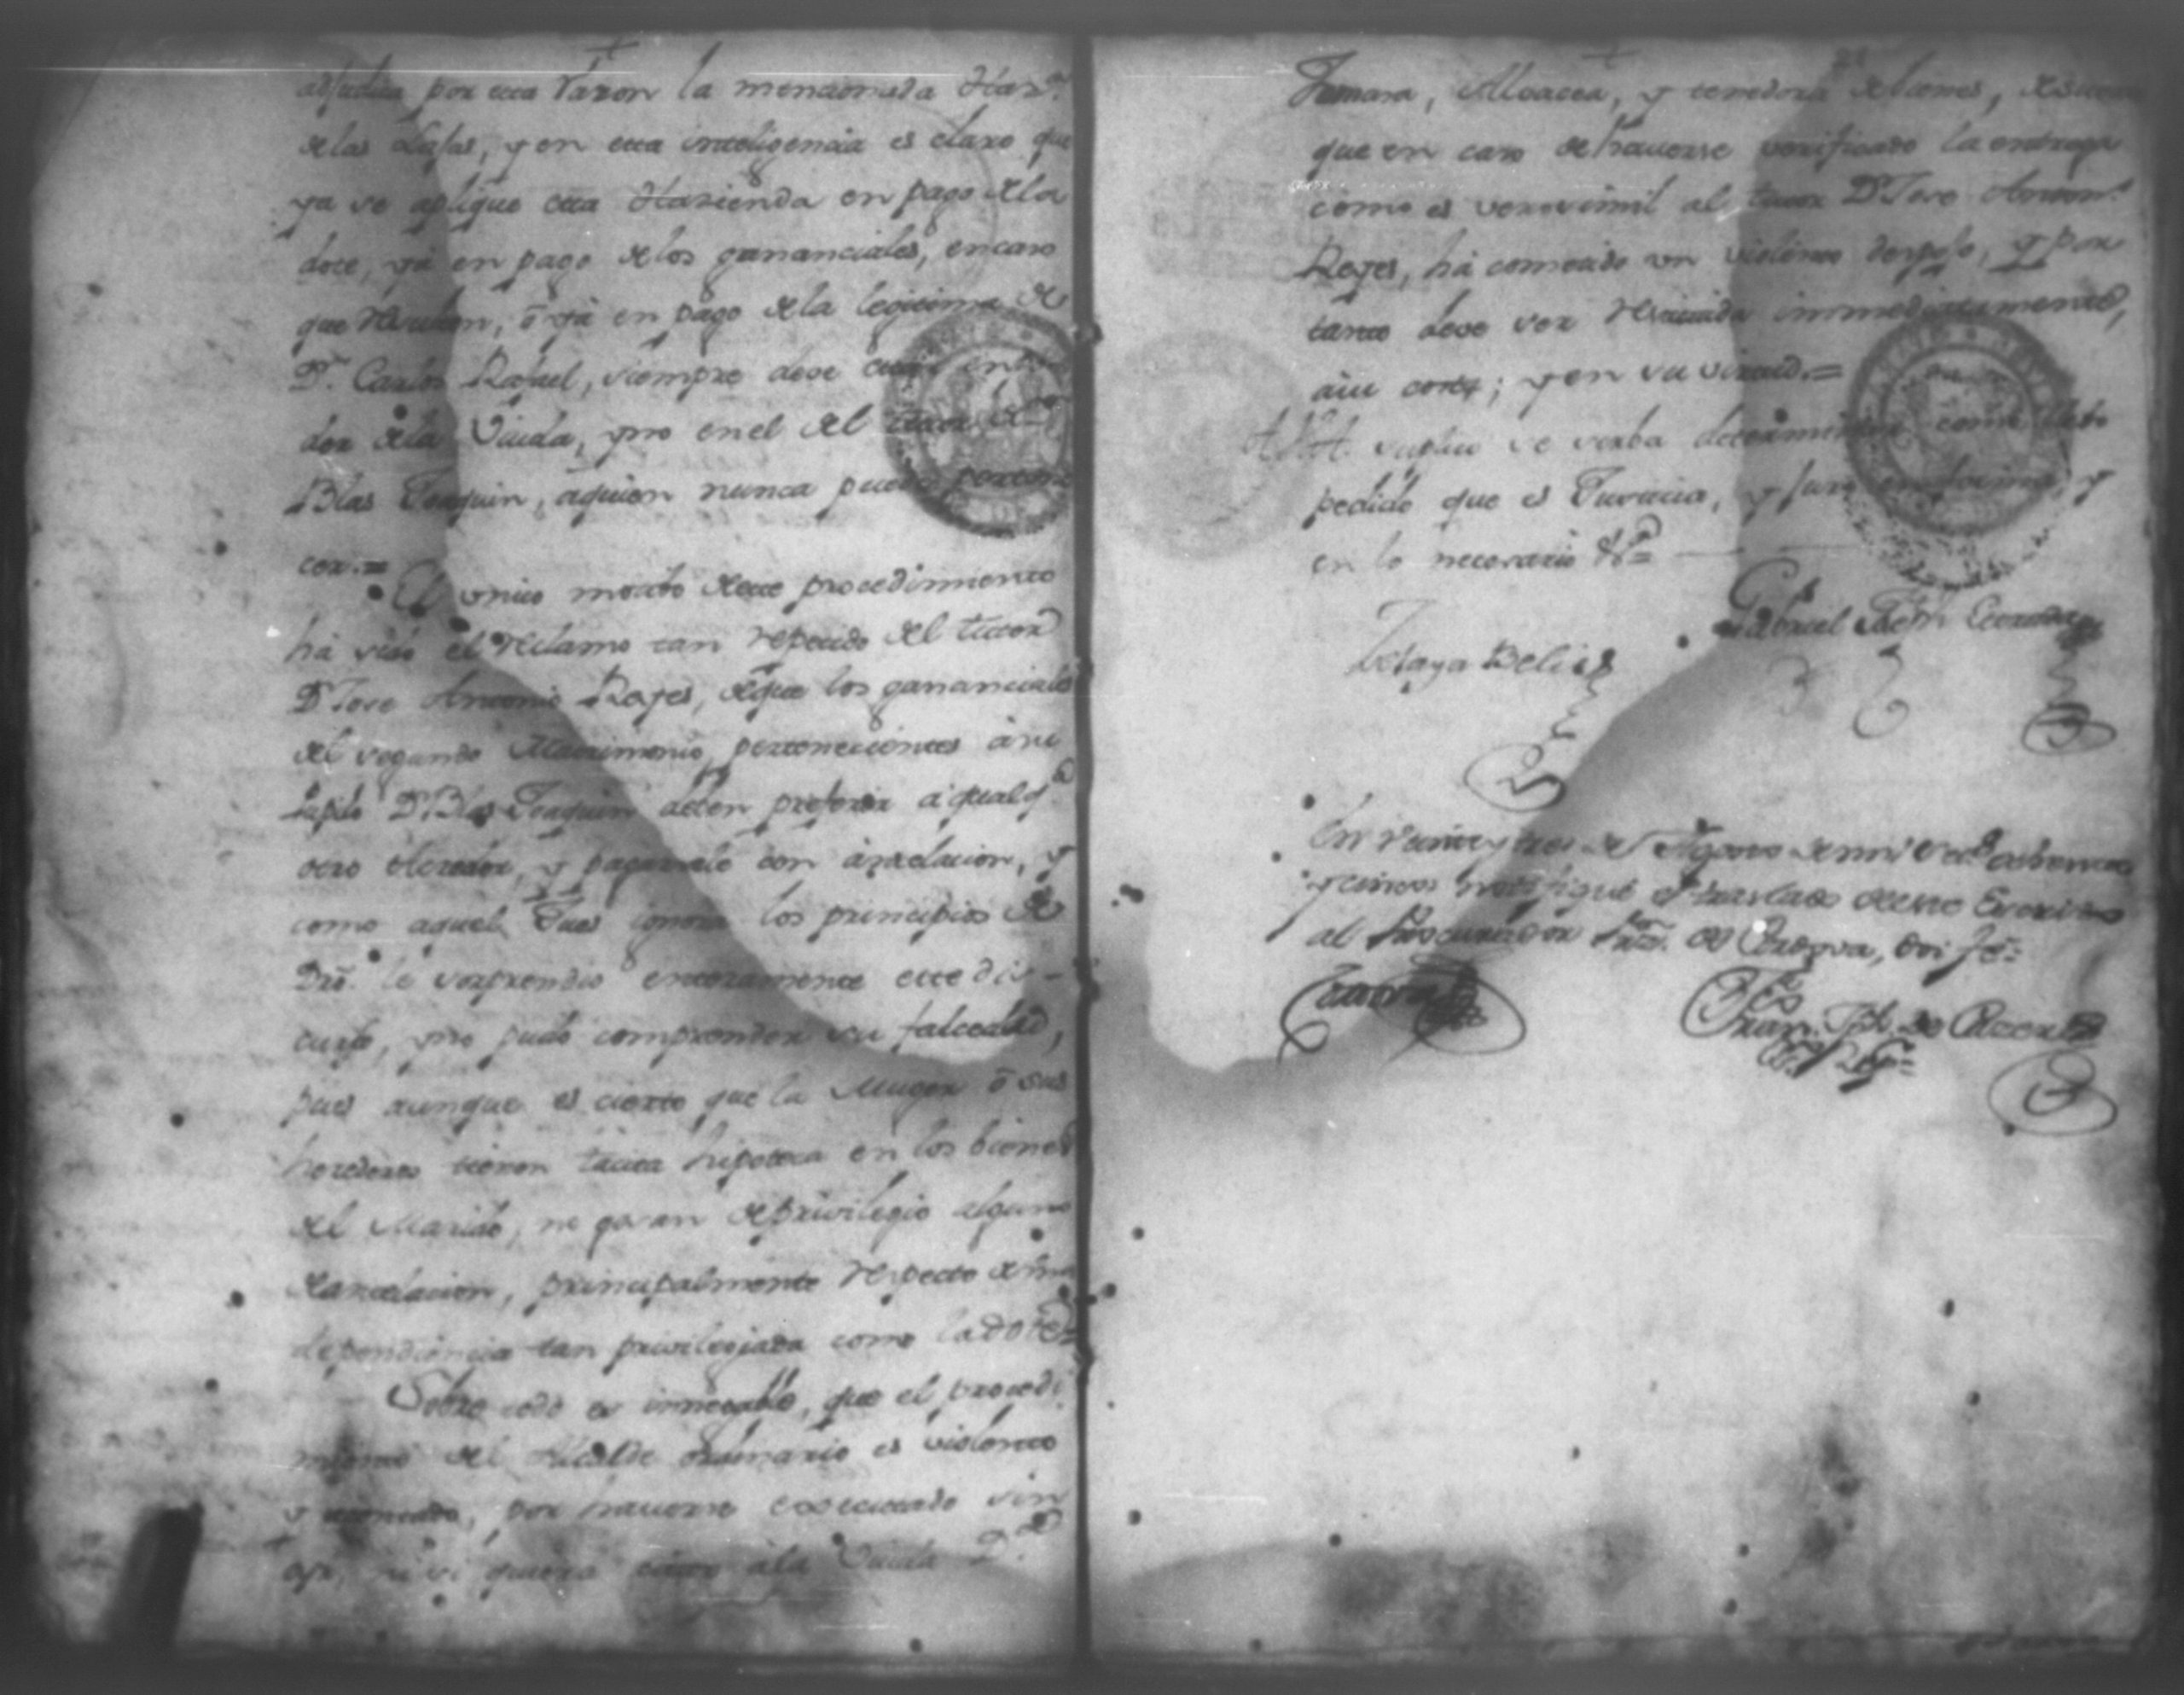 adjudica por esta razon la mencionada Haz.ª
de las Lajas, y en esta inteligencia es claro que
ya se aplique esta Hazienda en pago de la
dote, ya en pago de los gananciales, en caso
que resulten, ô ya en pago de la legitima de
Dⁿ. Carlos Rafael, siempre deve
dor de la Viuda, y no en el del tutor de Dⁿ
Blas Joaquin, aquien nunca puede pertene
cer.=
El unico motibo de este procedimiento
há sido el reclamo tan repetido del tutor
Dⁿ Jose Antonio Reyes, de que los gananciales
del segundo Matrimonio, pertenecientes á su
Pupilo Dⁿ Blas Joaquin deben preferir a qualqª
otro Acreedor, y pagarsele con ántelacion, y
como aquel Jues ignora los principios de
Dró. le sorprendio enteramente este dis-
curso, y no pudo comprender su falcedad,
pues aunque es cierto que la Muger ô sus
herederos tienen tácita hipoteca en los bienes
del Marido, no gosan de privilegio alguno
de antelacion, principalmente respecto de una
dependiencia tan privilegiada como la dote=
Sobre todo es innegable, que el procedi
miento del Alcalde ordinario es violento
y atentado, por haverse executado sin
oyr, ni si quiera citar á la Viuda D.ª
Tamara, Albacea, y tenedora de bienes, de suerte
que en caso de haverse verificado la entrega
como es verosimil al tutor Dⁿ Jose Anton.º
Reyes, há cometido un violento despojo, y por
tanto deve ser restituida immediatamente,
y en su virtud.=
A V.A. suplico se sirba determinar como llebo
pedido que es Justicia, y juro en forma, y
en lo necesario &ª=
Gabriel Joseph
Zelaya
En veinte y tres de Agosto de mil setᵒˢ ochenta
y cinco notifiqué el traslado de este Escrito
al Procurador Fran.ᶜᵒ de Cordova, doi fe=
Cordova